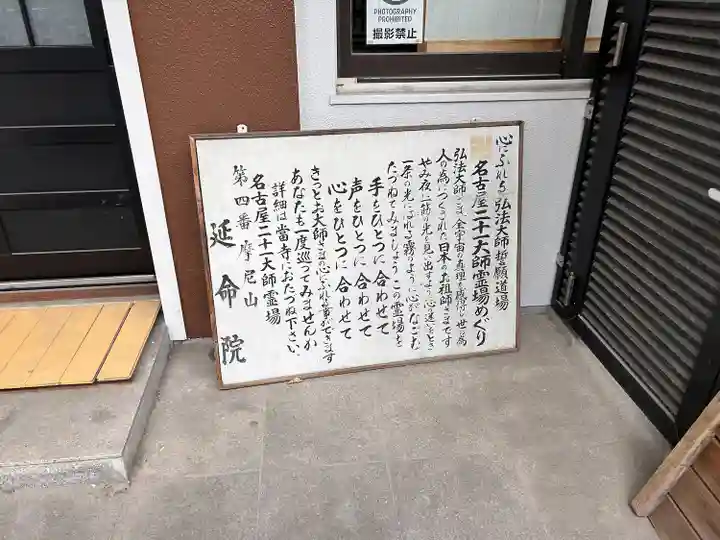 PHOTOGRAPHY
PROHIBITED
撮影禁止
心にふれる 弘法大師誓願道場
名古屋二十一大師霊場めぐり
弘法大師さまは全宇宙の真理を感得し世の為
人の為につくされた日本のお祖師さまです
やみ夜に一筋の光を見い出すよう心の迷いをとき
一条の光にふれる霧のように心がなごむ
たづねてみましょうこの霊場を
手をひとつに合わせて
声をひとつに合わせて
心をひとつに合わせて
きっとお大師さまの心にふれる事ができます
あなたも一度巡ってみませんか
詳細は當寺におたづね下さい、
名古屋二十一大師霊場
第四番 摩尼山
延命院